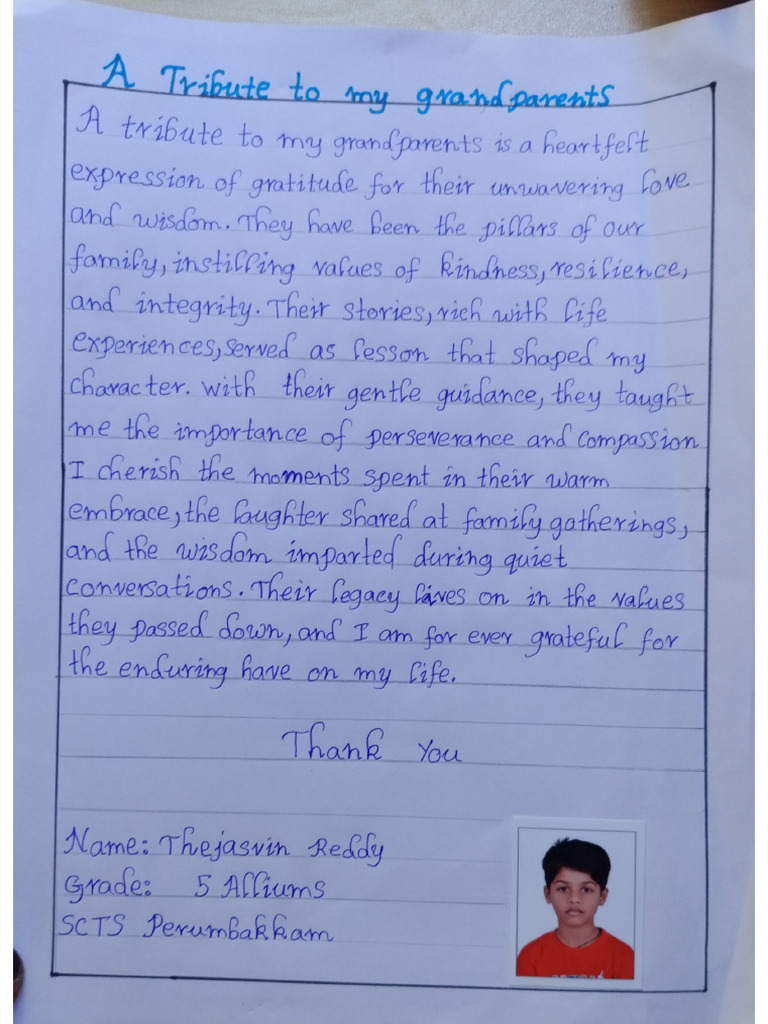 A Tribute to my grandparents
A tribute to my grandparents is a heartfelt
expression of gratitude for their unwavering love
and wisdom. They have been the pillars of our
family, instilling values of kindness, resilience,
and integrity. Their stories, rich with life
experiences, served as lesson that shaped my
character. with their gentle guidance, they taught
me the importance of perseverance and compassion
I cherish the moments spent in their warm
embrace, the laughter shared at family gatherings,
and the wisdom imparted during quiet
conversations. Their legacy lives on in the values
they passed down, and I am for ever grateful for
the enduring have on my life.
Thank You
Name: Thejasvin Reddy
Grade: 5 Alliums
SCTS Perumbakkam